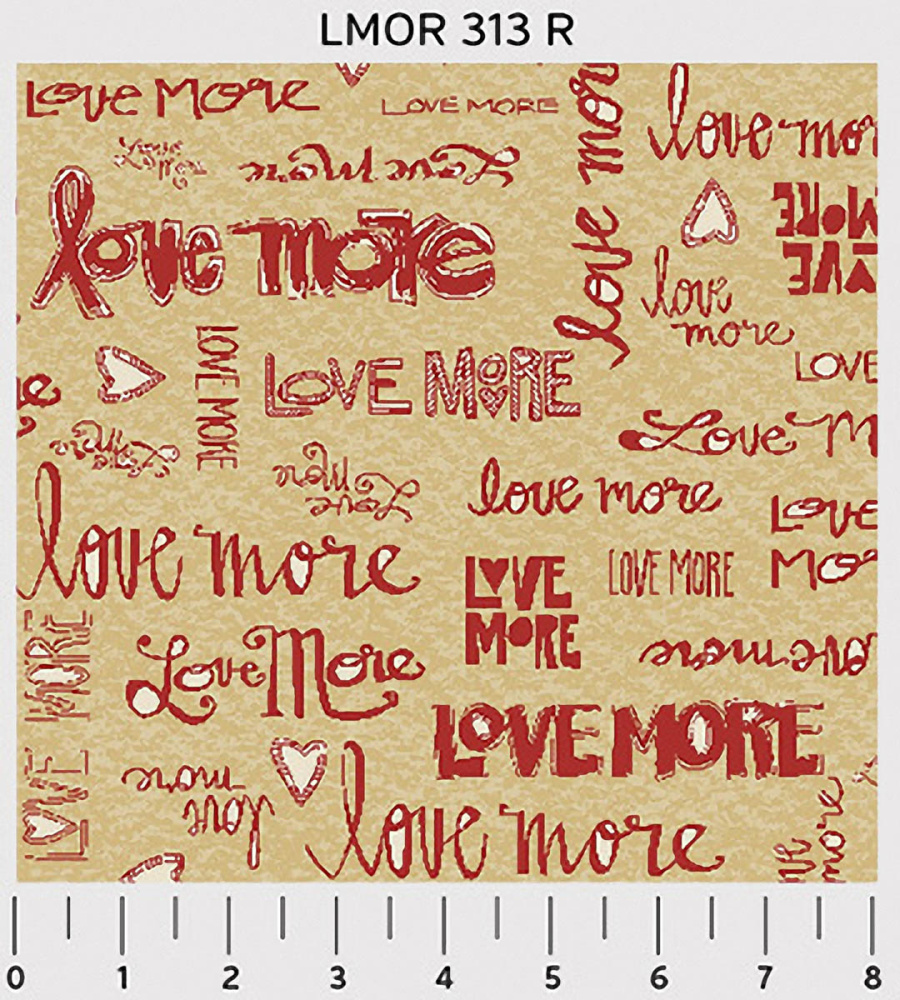 LMOR 313 R
Love More
LOVE MORE
love mor
love mor
Love More
Love More
love more
LOVE MORE
love more
LOVE
LOVE MORE
LOVE MORE
e
Love M
Love More
Love More
love more
LOVE MO
love more
LOVE MORE
LOVE MORE
LOVE MORE
Love More
ove more
LOVE MORE
love more
love more
ve more
0 1 2 3 4 5 6 7 8